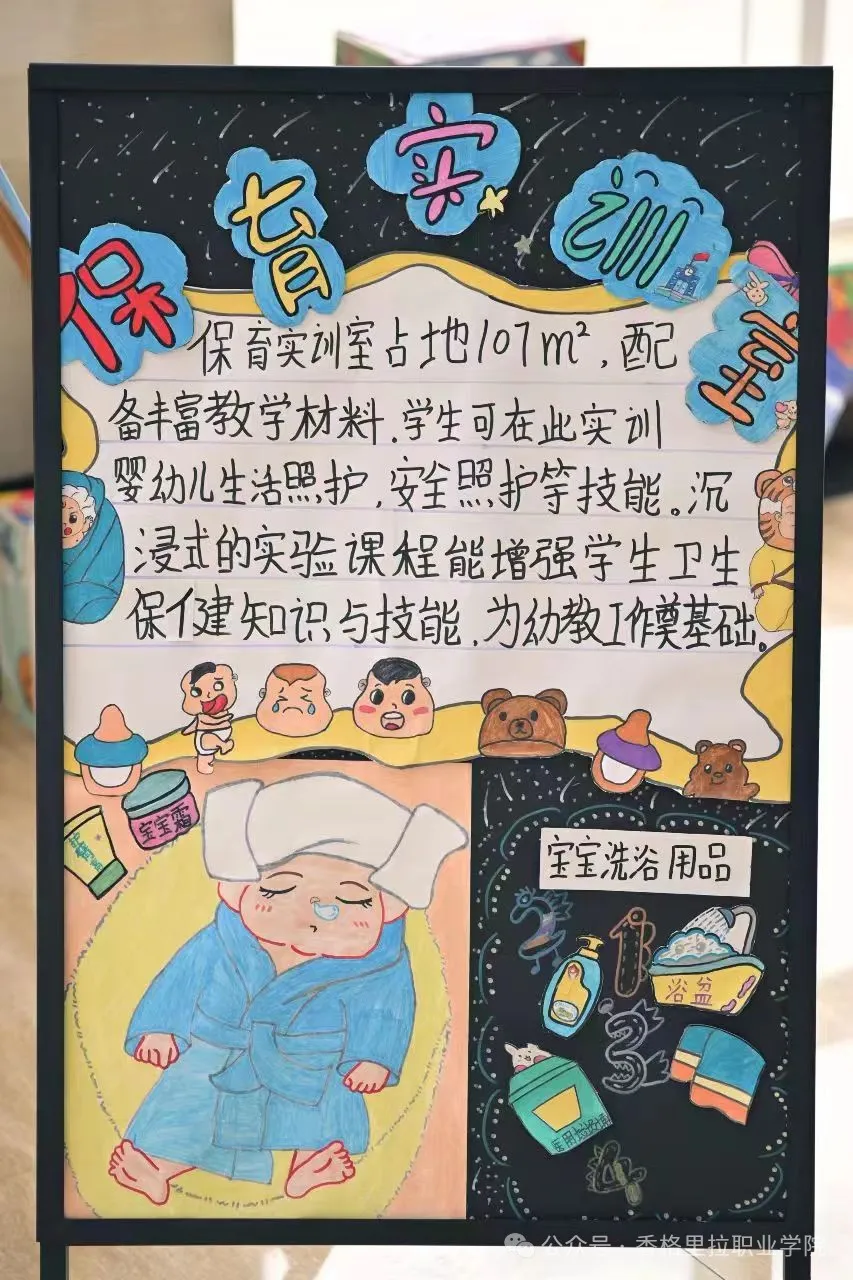 保育实训室
保育实训室占地107m²，配
备丰富教学材料.学生可在此实训
婴幼儿生活照护,安全照护等技能。沉
浸式的实验课程能增强学生卫生
保健知识与技能.为幼教工作奠基础。
宝宝霜
宝宝洗浴用品
2
1
浴盆
3
4
公众号·香格里拉职业学院